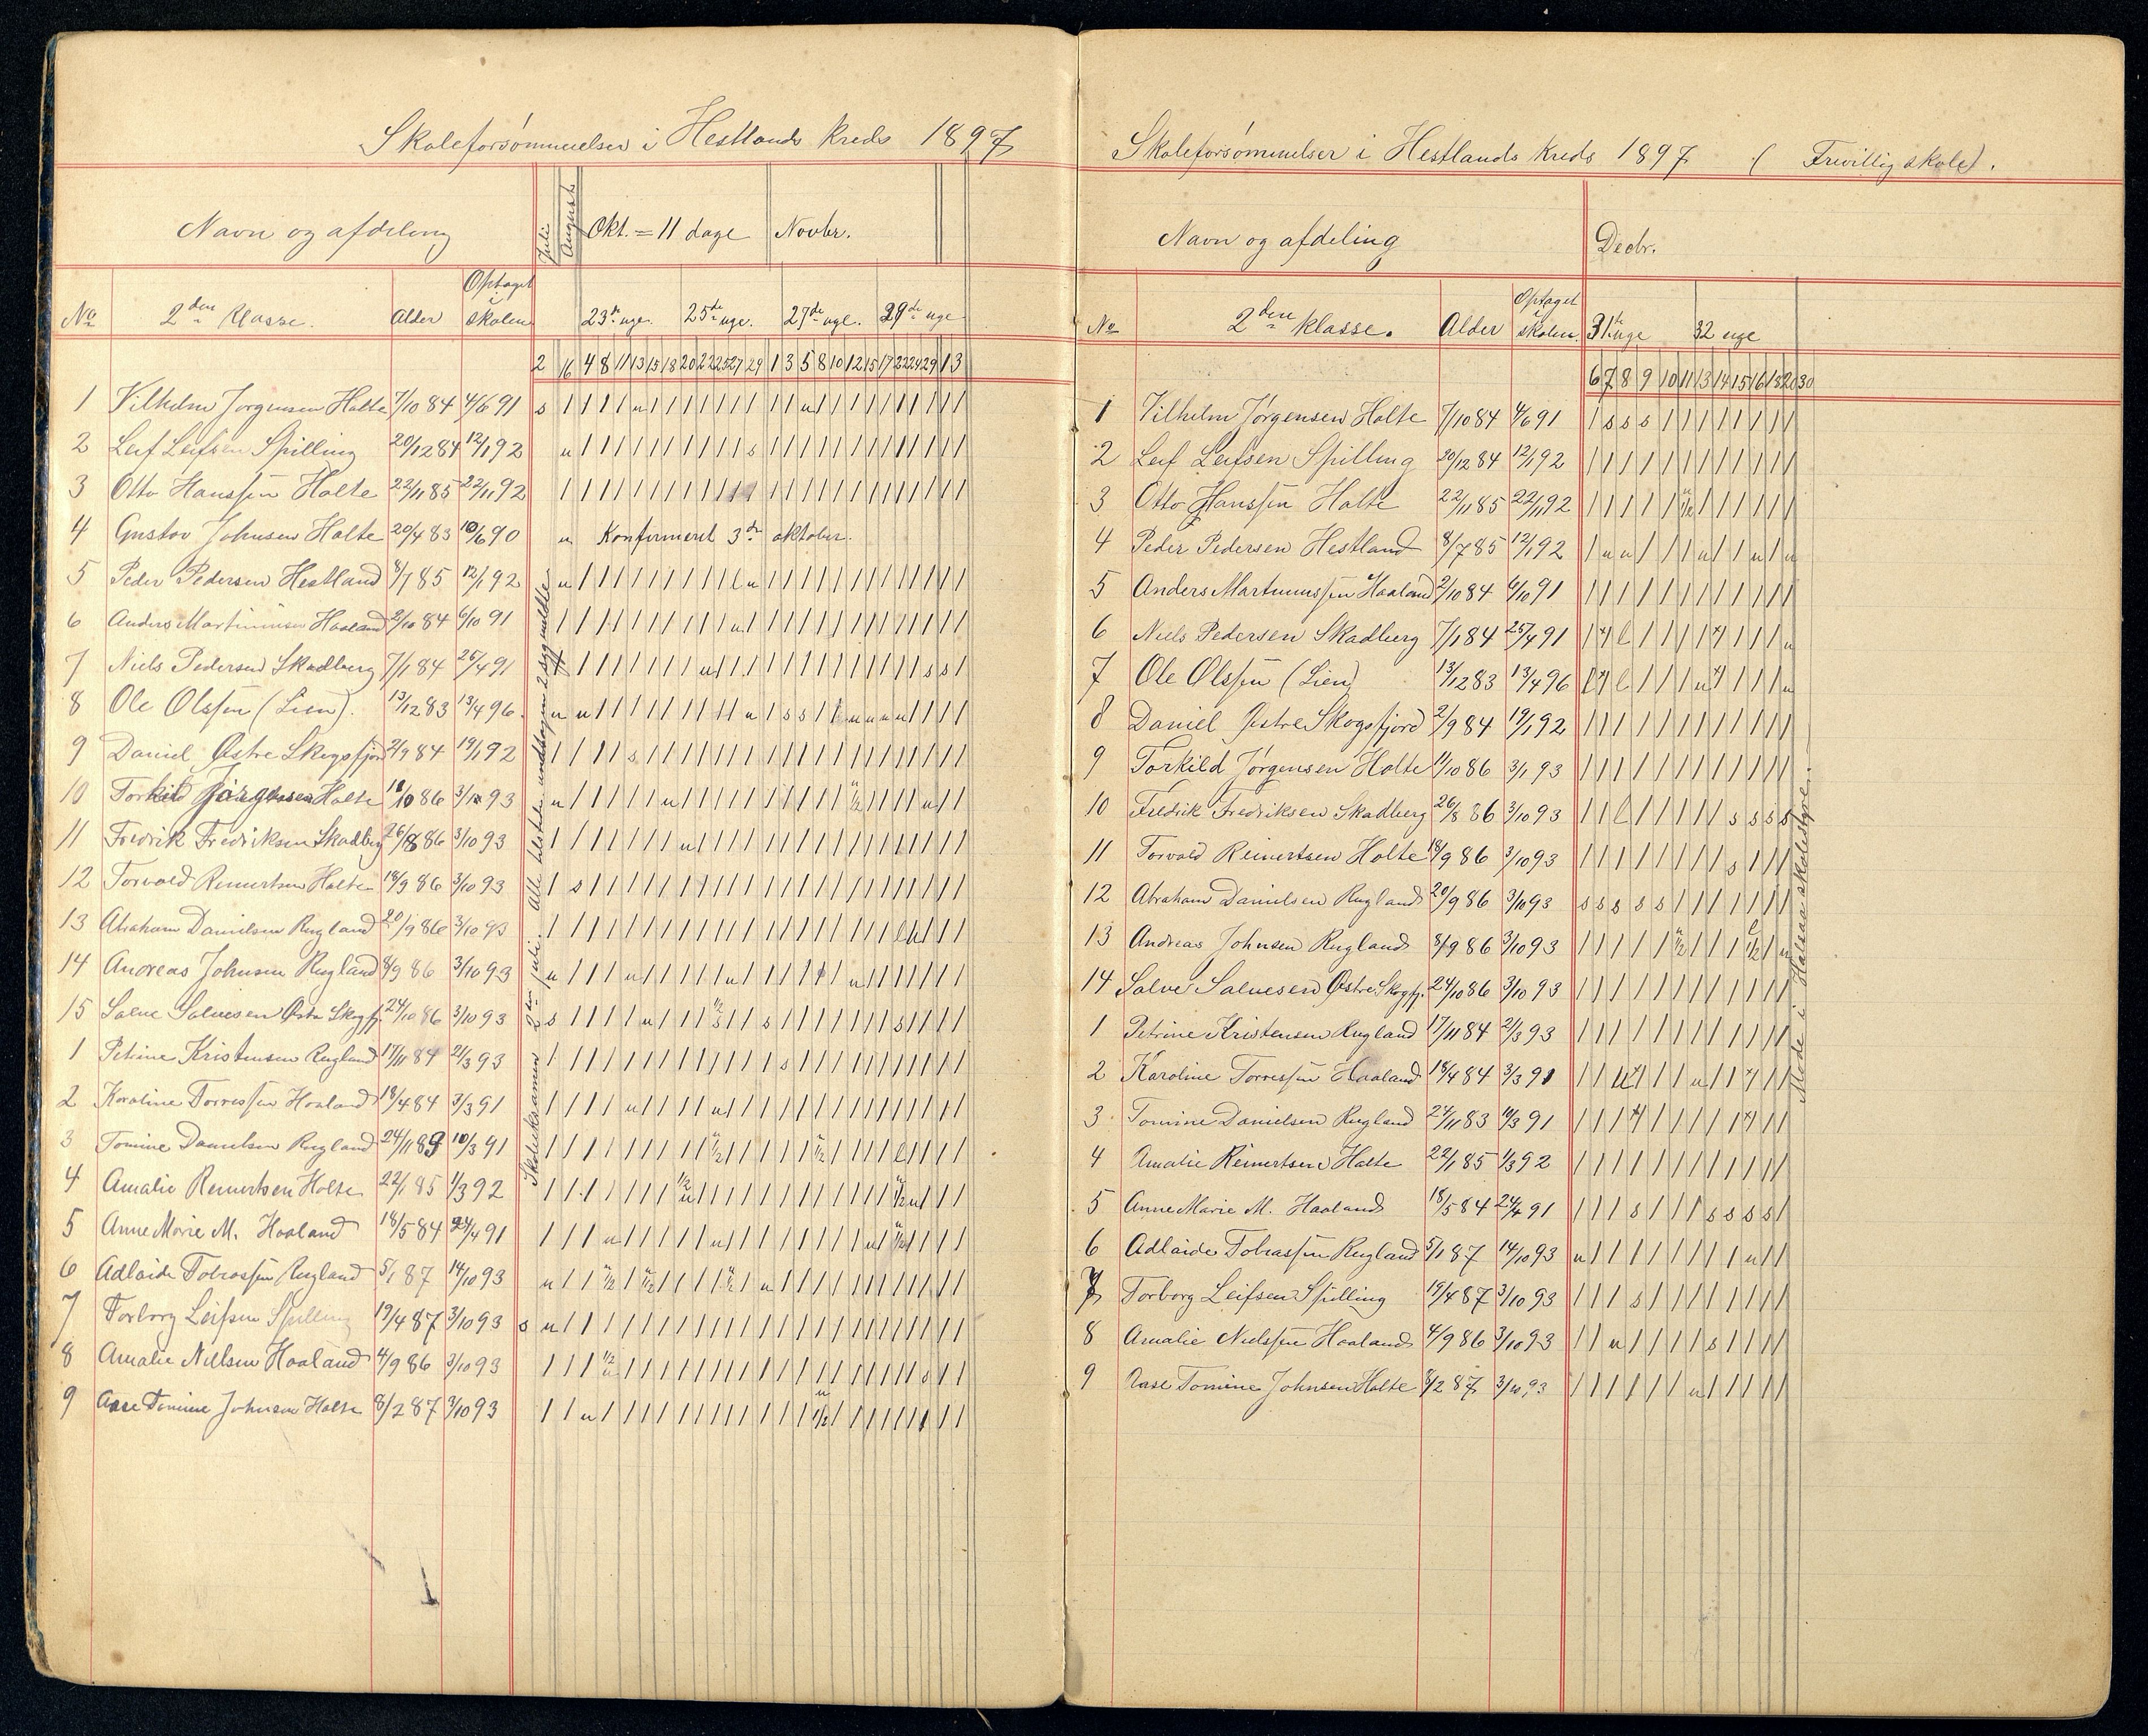 Skoleforsømmelser i Hestlands kreds 1897
Navn og afdeling
Juli
August
Okt. = 11 dage
Novbr.
No
2den klasse.
Alder
Optaget i skolen
23de uge.
25de uge.
27de uge.
29de uge
2 16 4 8 11 13 15 18 20 22 25 27 29 1 3 5 8 10 12 15 17 22 24 29 1 3
1 Vilhelm Jørgensen Holte 7/10 84 4/6 91
2 Leif Leifsen Spilling 20/12 84 12/1 92
3 Otto Hanssen Holte 22/11 85 22/11 92
4 Gustav Johnsen Holte 20/4 83 10/6 90 u Konfirmeret 3de oktober.
5 Peder Pedersen Hestland 8/7 85 12/1 92
6 Anders Martiniusen Haaland 2/10 84 6/10 91
7 Niels Pedersen Skadberg 7/1 84 25/4 91
8 Ole Olssen (Lien). 13/12 83 13/4 96.
9 Daniel Østre Skogsfjord 2/9 84 19/1 92
10 Torkild Jørgensen Holte 11/10 86 3/10 93
11 Fredrik Fredriksen Skadberg 26/8 86 3/10 93
12 Torvald Reinertsen Holte 18/9 86 3/10 93
13 Abraham Danielsen Rugland 20/9 86 3/10 93
14 Andreas Johnsen Rugland 8/9 86 3/10 93
15 Salve Salvesen Østre Skogsfj. 24/10 86 3/10 93
1 Petrine Kristensen Rugland 17/11 84 2/3 93
2 Karoline Torressen Haaland 18/4 84 3/3 91
3 Tomine Danielsen Rugland 24/11 83 10/3 91
4 Amalie Reinertsen Holte 22/1 85 1/3 92
5 Anne Marie M. Haaland 18/5 84 24/4 91
6 Adlaide Tobiassen Rugland 5/1 87 14/10 93
7 Torborg Leifsen Spilling 19/4 87 3/10 93
8 Amalie Nielsen Haaland 4/9 86 3/10 93
9 Aase Tomine Johnsen Holte 8/2 87 3/10 93
Skoleeksamen 2den juli. Alle tilstede undtagen 2 sygmeldte.
Skoleforsømmelser i Hestlands kreds 1897 (Frivillig skole).
Navn og afdeling
Decbr.
No
2den klasse.
Alder
Optaget i skolen.
31te uge
32 uge
6 7 8 9 10 11 13 14 15 16 18 20 30
1 Vilhelm Jørgensen Holte 7/10 84 4/6 91
2 Leif Leifsen Spilling 20/12 84 12/1 92
3 Otto Hanssen Holte 22/11 85 22/11 92
4 Peder Pedersen Hestland 8/7 85 12/1 92
5 Anders Martiniussen Haaland 2/10 84 6/10 91
6 Niels Pedersen Skadberg 7/1 84 25/4 91
7 Ole Olssen (Lien) 13/12 83 13/4 96
8 Daniel Østre Skogsfjord 2/9 84 19/1 92
9 Torkild Jørgensen Holte 11/10 86 3/1 93
10 Fredrik Fredriksen Skadberg 26/8 86 3/10 93
11 Torvald Reinertsen Holte 18/9 86 3/10 93
12 Abraham Danielsen Rugland 20/9 86 3/10 93
13 Andreas Johnsen Rugland 8/9 86 3/10 93
14 Salve Salvesen Østre Skogsfj. 24/10 86 3/10 93
1 Petrine Kristensen Rugland 17/11 84 2/3 93
2 Karoline Torressen Haaland 18/4 84 3/3 91
3 Tomine Danielsen Rugland 24/11 83 10/3 91
4 Amalie Reinertsen Holte 22/1 85 1/3 92
5 Anne Marie M. Haaland 18/5 84 24/4 91
6 Adlaide Tobiassen Rugland 5/1 87 14/10 93
7 Torborg Leifsen Spilling 19/4 87 3/10 93
8 Amalie Nielssen Haaland 4/9 86 3/10 93
9 Aase Tomine Johnsen Holte 8/2 87 3/10 93
Møde i Halsaa skolestyre.